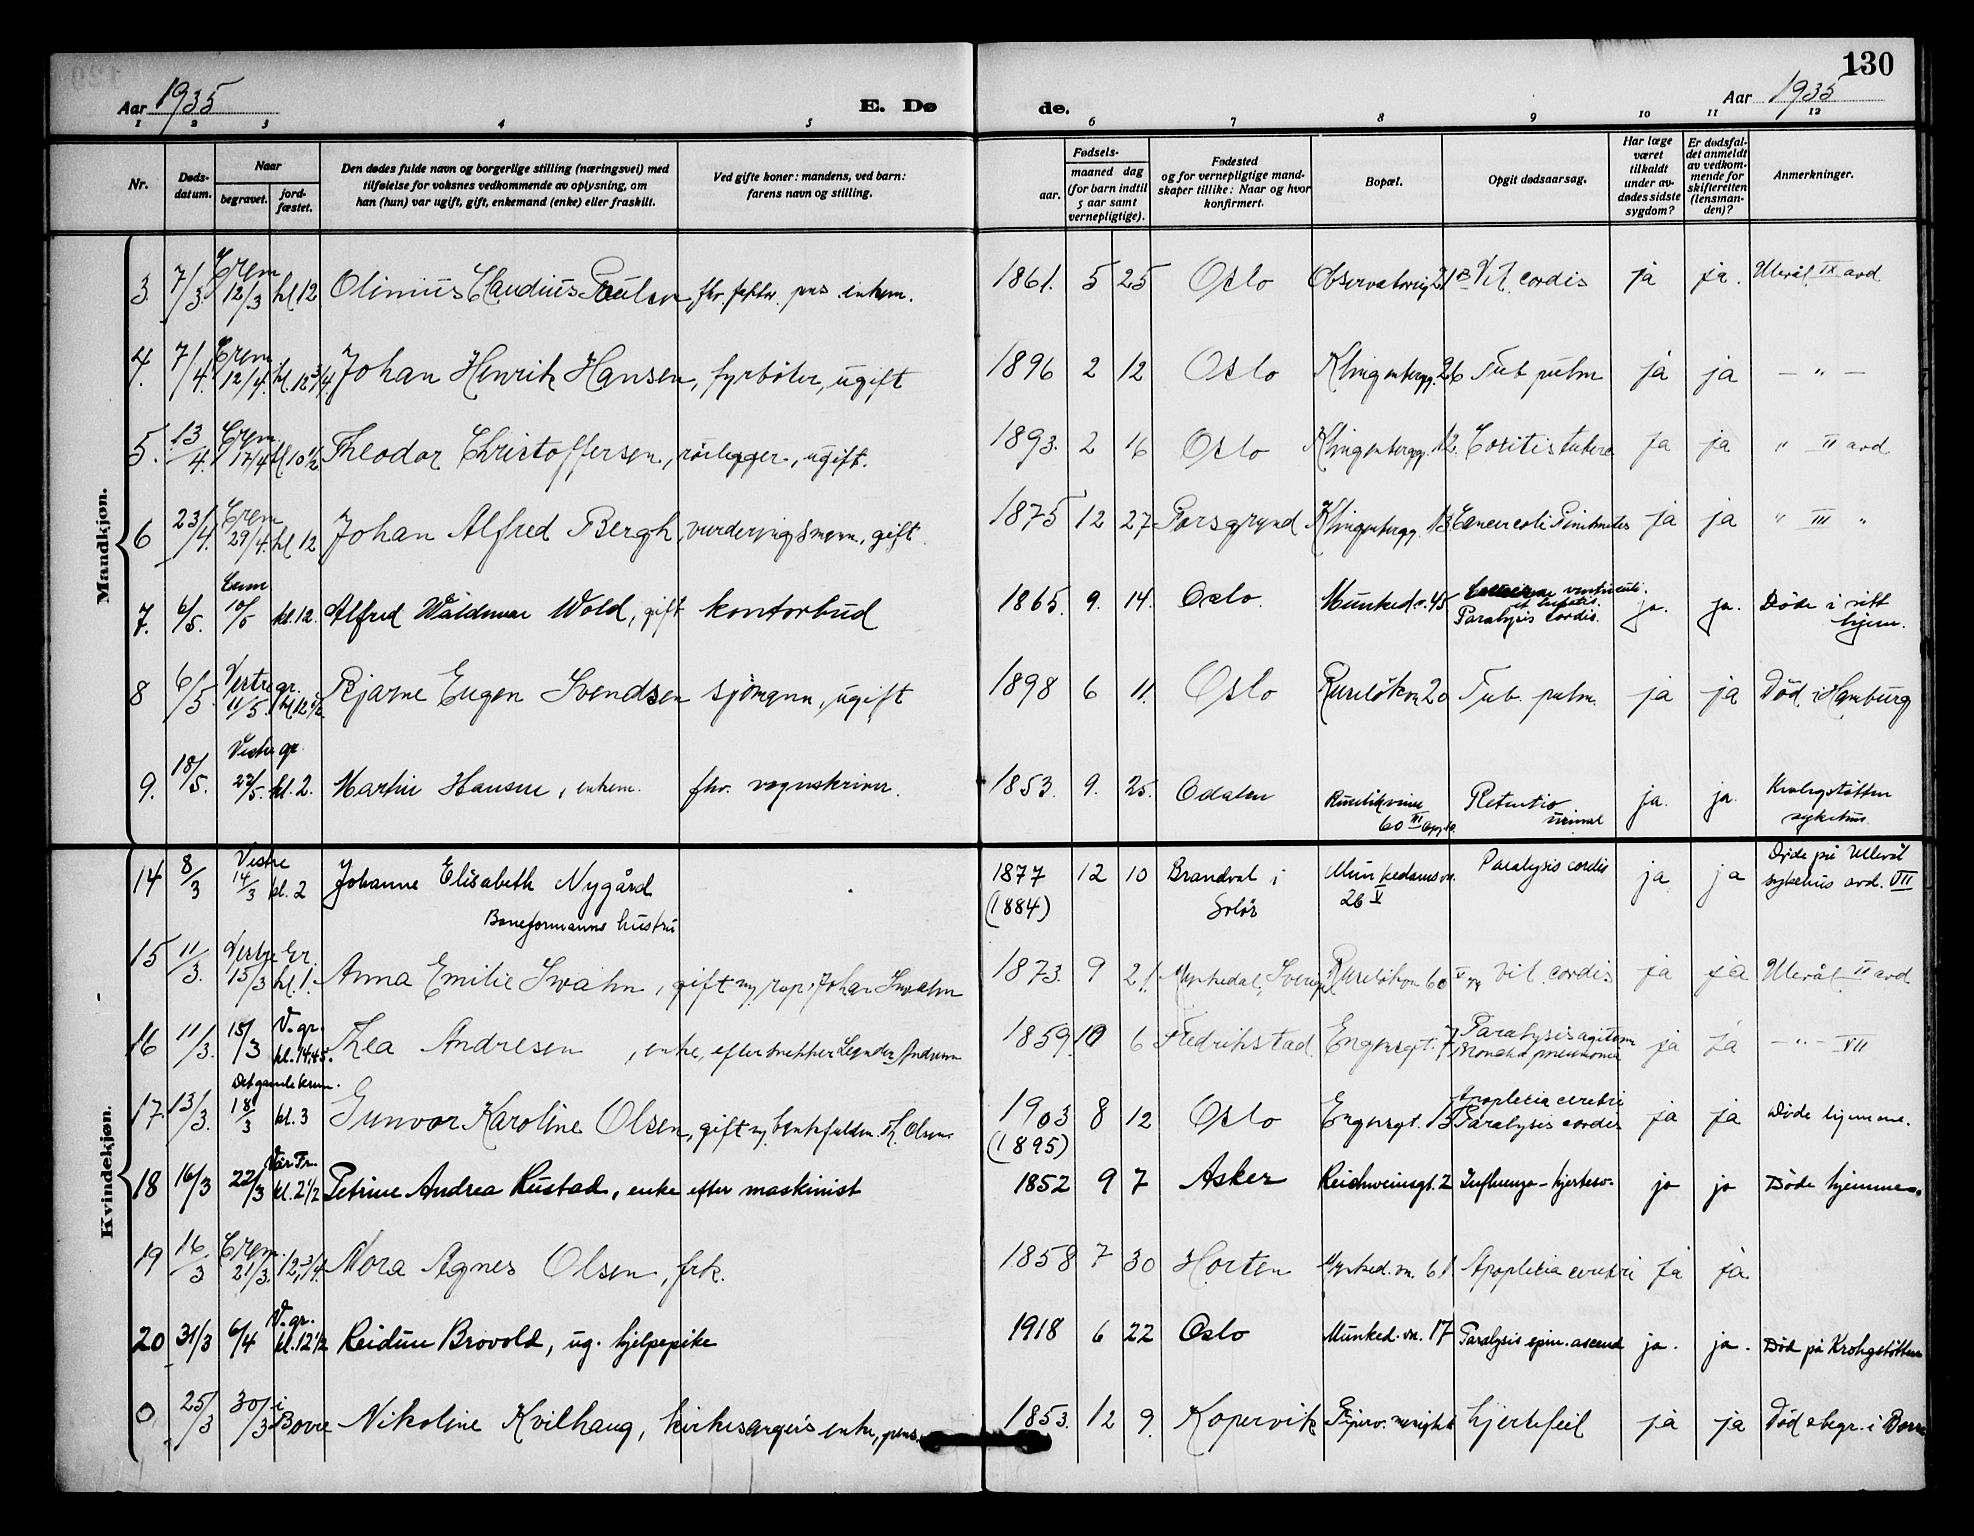 130
Aar 1935
E. Dø
de.
Aar 1935
1 2 3 4 5 6 7 8 9 10 11 12
Nr.
Døds-
datum.
Naar
begravet.
jord-
fæstet.
Den dødes fulde navn og borgerlige stilling (næringsvei) med
tilføielse for voksnes vedkommende av oplysning, om
han (hun) var ugift, gift, enkemand (enke) eller fraskilt.
Ved gifte koner: mandens, ved barn:
farens navn og stilling.
Fødsels-
aar.
maaned dag
(for barn indtil
5 aar samt
vernepligtige).
Fødested
og for vernepligtige mand-
skaper tillike: Naar og hvor
konfirmert.
Bopæl.
Opgit dødsaarsag.
Har læge
været
tilkaldt
under av-
dødes sidste
sygdom?
Er dødsfal-
det anmeldt
av vedkom-
mende for
skifteretten
(lensman-
den)?
Anmerkninger.
Mandkjøn.
3 7/3 Crem 12/3 kl 12 Olinius Claudius Paulsen enkem. 1861. 5 25 Oslo Observatorieg 21 Vit. cordis ja ja. Ullevål IX avd
4. 7/4. Crem. 12/4. kl. 12 3/4. Johan Henrik Hansen, fyrbøter, ugift 1896 2 12 Oslo Klingenbergg. 26 Tub. pulm ja ja — " —
5. 13/4. Crem 17/4 kl 10 1/2 Theodor Christoffersen, rørlegger, ugift. 1893. 2 16 Oslo Klingenbergg. 12. Coxitis tuberc ja ja " II avd
6 23/4. Crem 29/4. kl 12 Johan Alfred Bergh, vurderingsmann, gift. 1875 12 27 Porsgrund Klingenbergg. 13 Cancer coli ja ja " III "
7. 6/5. Crem 10/5 kl. 12. Alfred Waldemar Wold, gift kontorbud 1865. 9. 14. Oslo. Munked.v. 45 Cancer ventriculi.
et hepatis.
Paralysis cordis. ja. ja. Døde i sitt
hjem.
8 6/5. Vestre gr. 11/5. kl 12 1/2 Bjarne Eugen Svendsen sjømann, ugift 1898 6 11. Oslo Ruseløkvn 20 Tub. pulm. ja ja Død i Hamburg
9. 18/5. Vestre gr. 22/5. kl. 2. Martin Hansen, enkem. fhv. vognskriver. 1853. 9. 25. Odalen Ruseløkveien
60 III Retentio
urinae ja. ja. Krohgstøtten
sykehus.
Kvindekjøn.
14 8/3 Vestre 14/3 kl. 2 Johanne Elisabeth Nygård
Baneformanns hustru 1877
(1884) 12 10 Brandval i
Solør Munkedamsvn.
26 V Paralysis cordis ja ja Døde på Ullevål
sykehus avd. VII
15 11/3. Vestre Gr. 15/3 kl. 1. Anna Emilie Swahn, gift m. rep. Johan Swahn 1873. 9 21. Munkedal, Sverige Ruseløkvn 60 V Vit. cordis ja ja Ullevål II avd
16 11/3. 15/3 V. gr. kl. 14.45. Thea Andresen, enke, efter snekker Andresen 1859. 10 6 Fredrikstad Engensgt. 7 Paralysis agitans
Broncho pneumonia ja ja — " — VII
17. 13/3. Det gamle krem. 18/3 kl. 3 Gunvor Karoline Olsen, gift m. bankfuldm. Th. Olsen 1903
(1895) 8 12 Oslo Engensgt. 13 Apoplexia cerebri
Paralysis cordis ja ja Døde hjemme.
18 16/3 22/3 Vår Fr. kl. 2 1/2 Petrine Andrea Rustad, enke efter maskinist 1852 9 7 Asker Reichweinsgt. 2 Influenza - hjertesv. ja ja Døde hjemme.
19 16/3 Crem. 21/3. 12, 3/4. Nora Agnes Olsen, frk. 1858 7 30 Horten Munked. vn. 61. Apoplexia cerebri ja ja
20 31/3 6/4 V. gr. kl. 12 1/2 Reidun Brovold, ug. hjelpepike 1918 6 22 Oslo Munked. vn. 17 Paralysis spin. ascend ja. ja. Død på Krohgstøtten
0 25/3 30/3 i Borre Nikoline Kvilhaug, kirkesangers enke, pens. 1853. 12 9. Kopervik hjertefeil ja ja Død & begr. i Borre